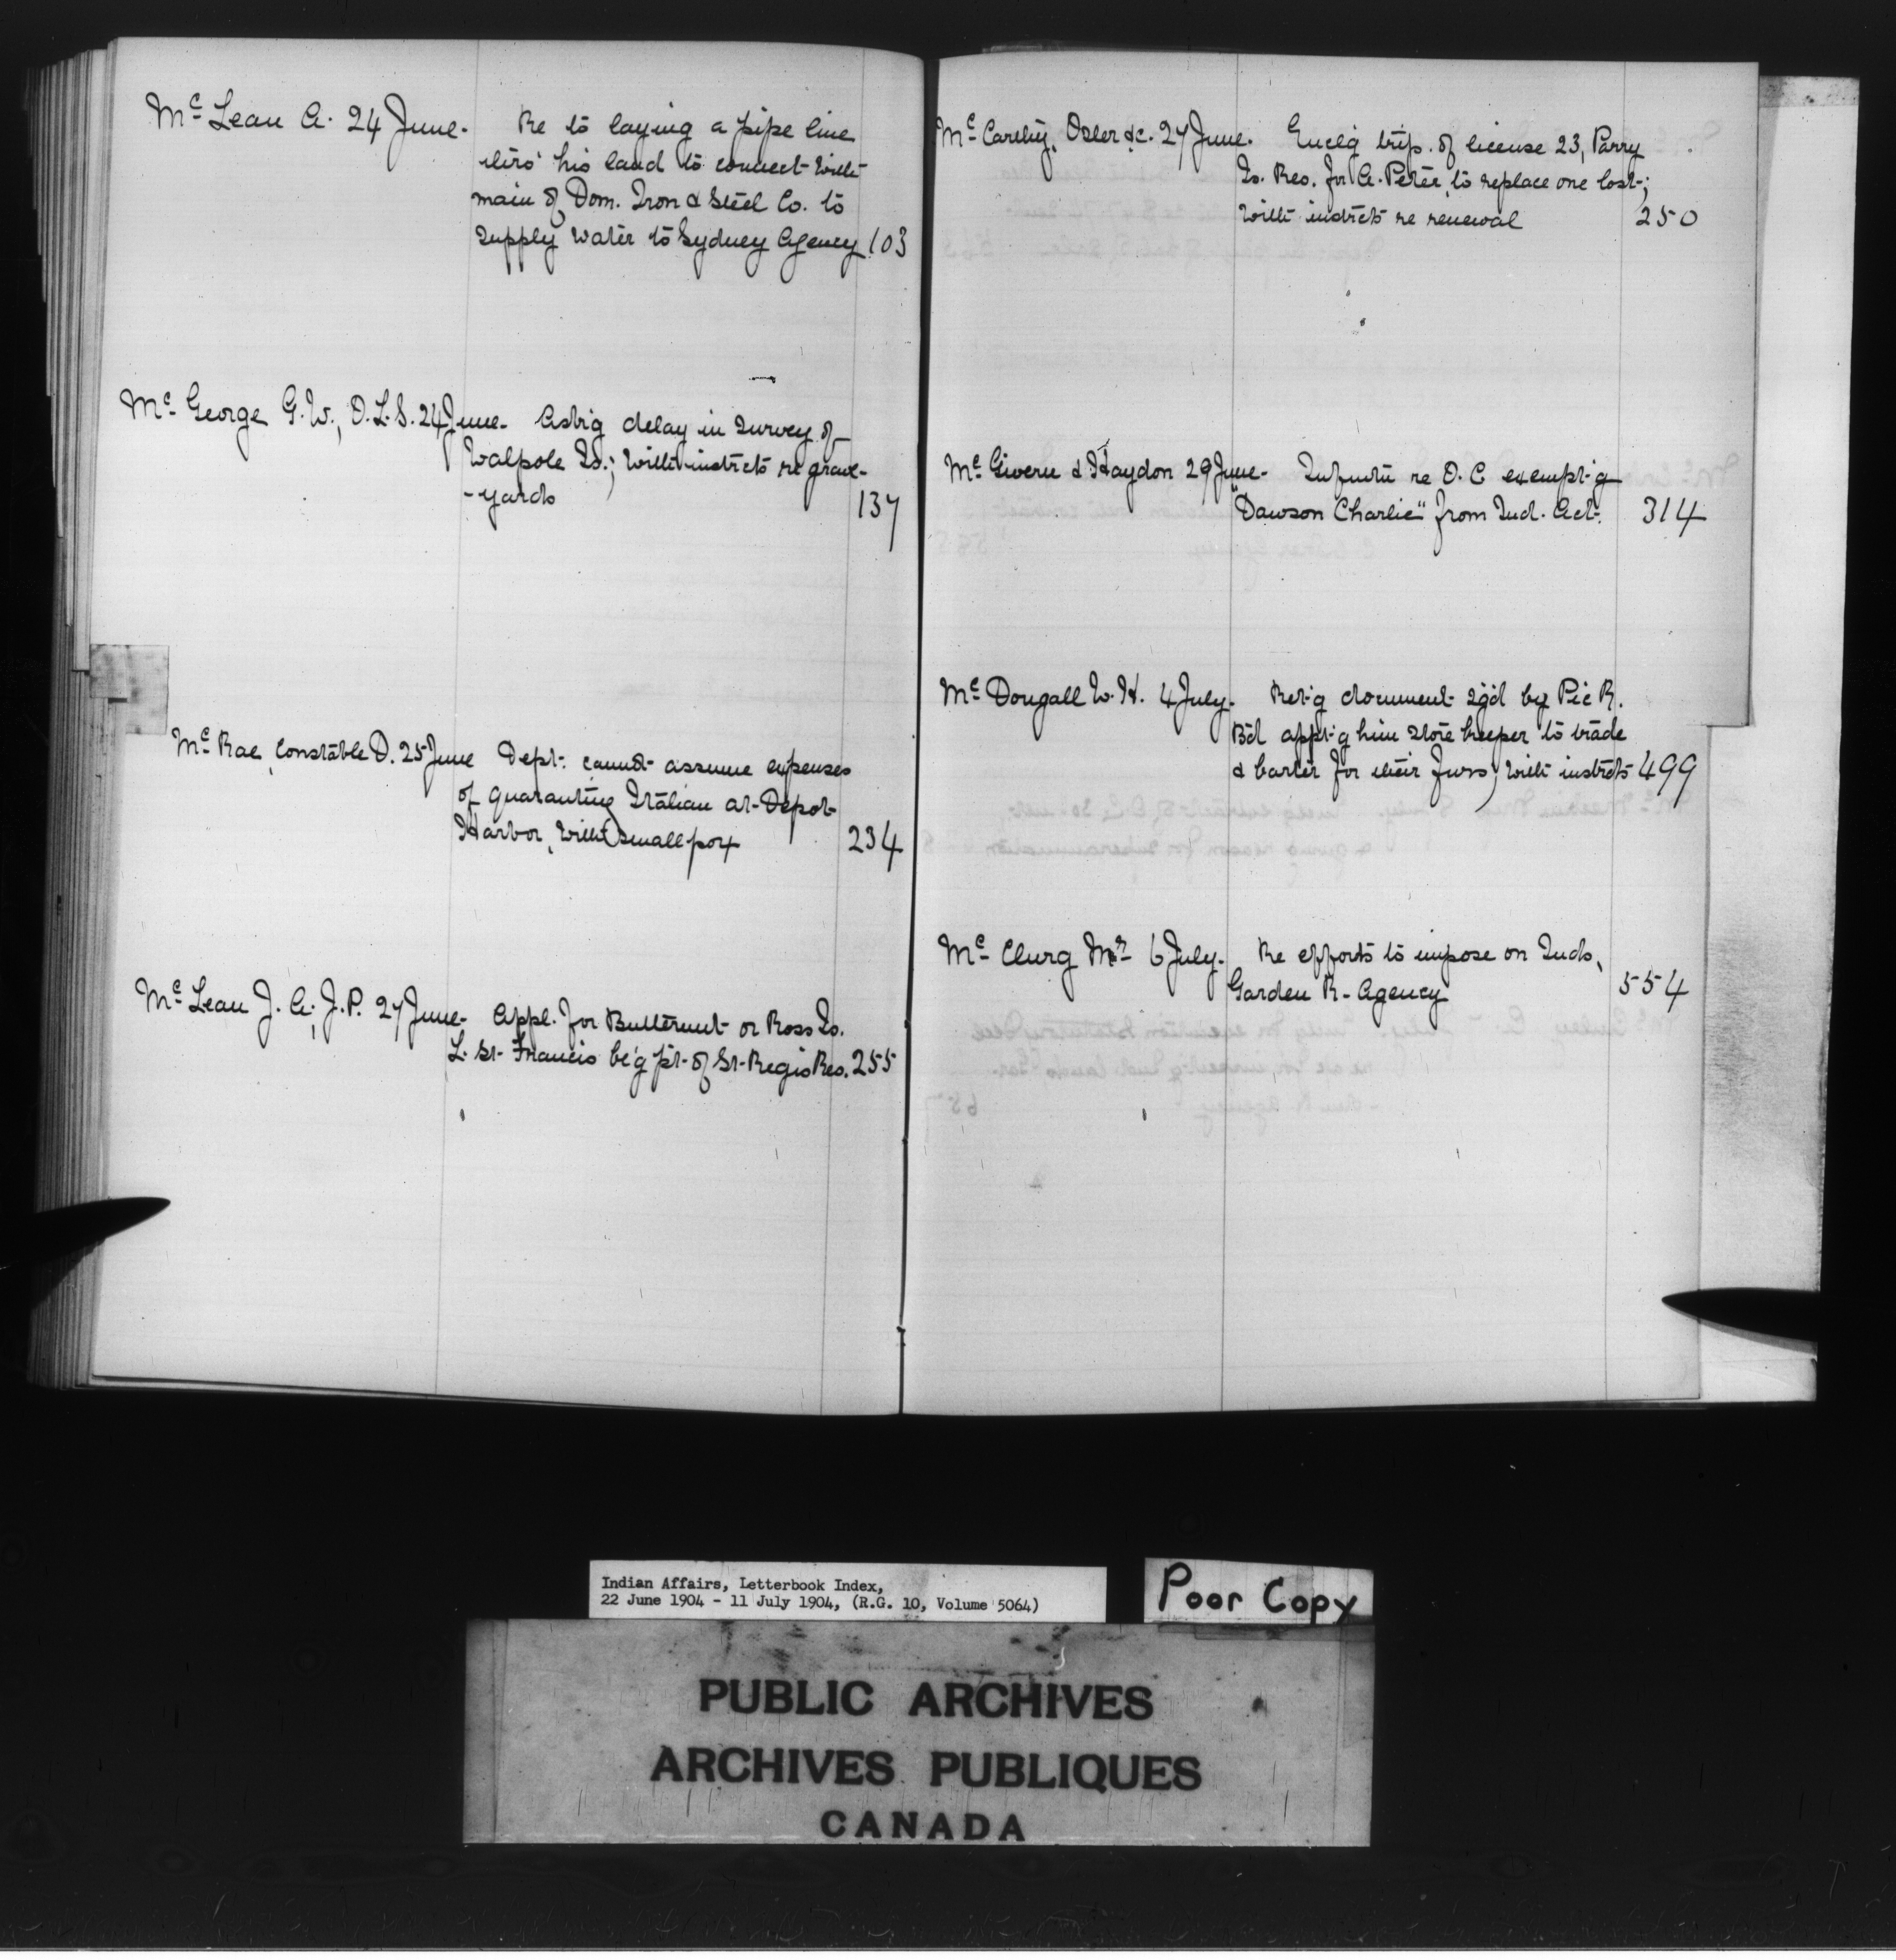 Mc Lean A. 24 June. Re to laying a pipe line
thro' his land to connect with
main of Dom. Iron & Steel Co. to
supply water to Sydney Agency 103
Mc George G.W., O.L.S. 24 June. Ask'g delay in survey of
Walpole Is.; with instrcts re grave-
-yards 137
Mc Rae, Constable D. 25 June Dept. cannot assume expenses
of quaranting Italian at Depot
Harbor, with smallpox 234
Mc Lean J. A., J.P. 27 June. Appl. for Butternut or Ross Is.
L. St. Francis be'g pt. of St. Regis Res. 255
Mc Carthy, Osler &c. 27 June. Encl'g trip. of license 23, Parry
Is. Res. for A. Peter, to replace one lost;
with instrcts re renewal 250
Mc Givern & Haydon 29 June. Infmtn re O.C exempt'g
"Dawson Charlie" from Ind. Act. 314
Mc Dougall W. H. 4 July. Ret'g document sg'd by Pic R.
B'd appt'g him store keeper to trade
& barter for their furs; with instrcts 499
Mc Clurg Mr 6 July. Re efforts to impose on Inds,
Garden R. Agency 554
Indian Affairs, Letterbook Index,
22 June 1904 - 11 July 1904, (R.G. 10, Volume 5064)
Poor Copy
PUBLIC ARCHIVES
ARCHIVES PUBLIQUES
CANADA